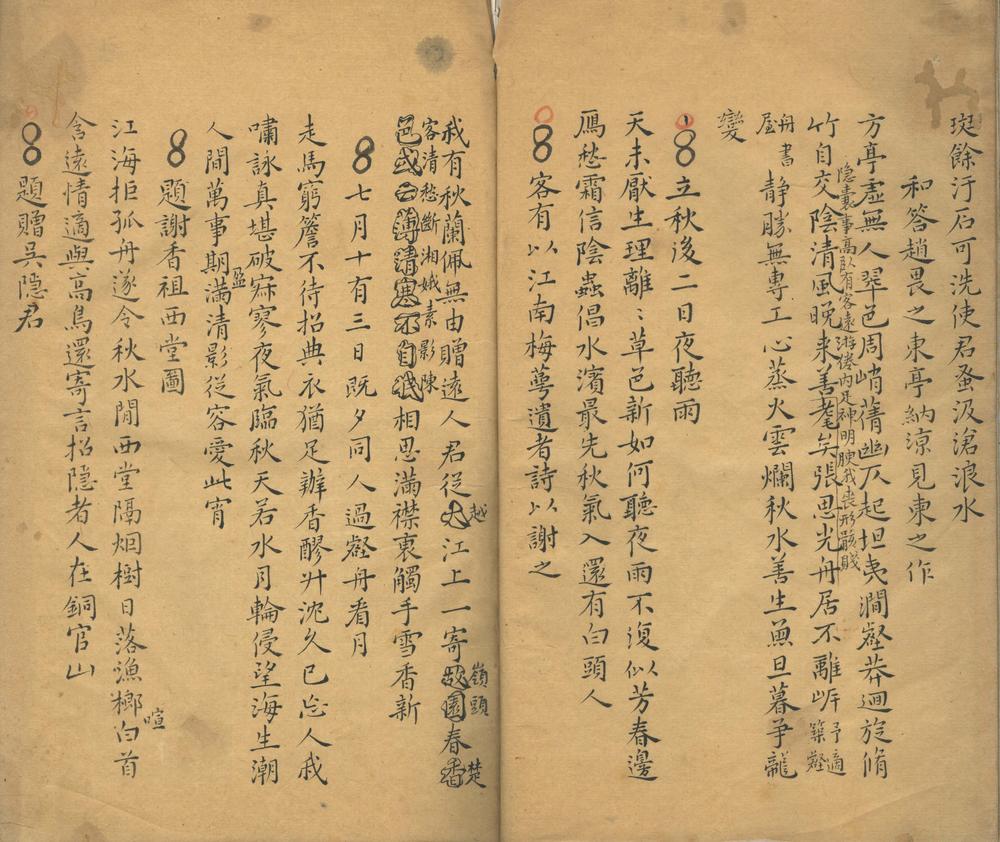 斑餘汙后可洗使君蚤汲滄浪水
和答趙畏之東亭納涼見柬之作
方亭虛無人翠邑周峭蒨幽仄起坦夷澗壑莽迴旋脩
隐囊事高臥有客遠游倦内足神明腴我喪形骸賤
竹自交陰清風晚来善耄矣張思光舟居不離岸予適築壑
舟書屋靜勝無專工心蒸火雲爛秋水善生魚旦暮爭龍
變
立秋後二日夜聽雨
天未厭生理離〻草邑新如何聽夜雨不復似芳春邊
鴈愁霜信陰蟲倡水濱最先秋氣入還有白頭人
客有以江南梅萼遺者詩以謝之
我有秋蘭佩無由贈遠人君從大越江上一寄故園嶺頭春香楚
客清愁斷湘娥素影陳
邑或云薄清寒不自相思滿襟裏觸手雪香新
七月十有三日既夕同人過壑舟看月
走馬窮簷不待招典衣猶足辦香醪升沈久已忘人我
嘯詠真堪破寂寥夜氣臨秋天若水月輪侵望海生潮
人間萬事期滿盈清影從容愛此宵
題謝香祖西堂圖
江海拒孤舟遂令秋水閒西堂隔烟樹日落漁榔喧白首
含遠情適與高鳥還寄言招隐者人在銅官山
題贈吳隐君